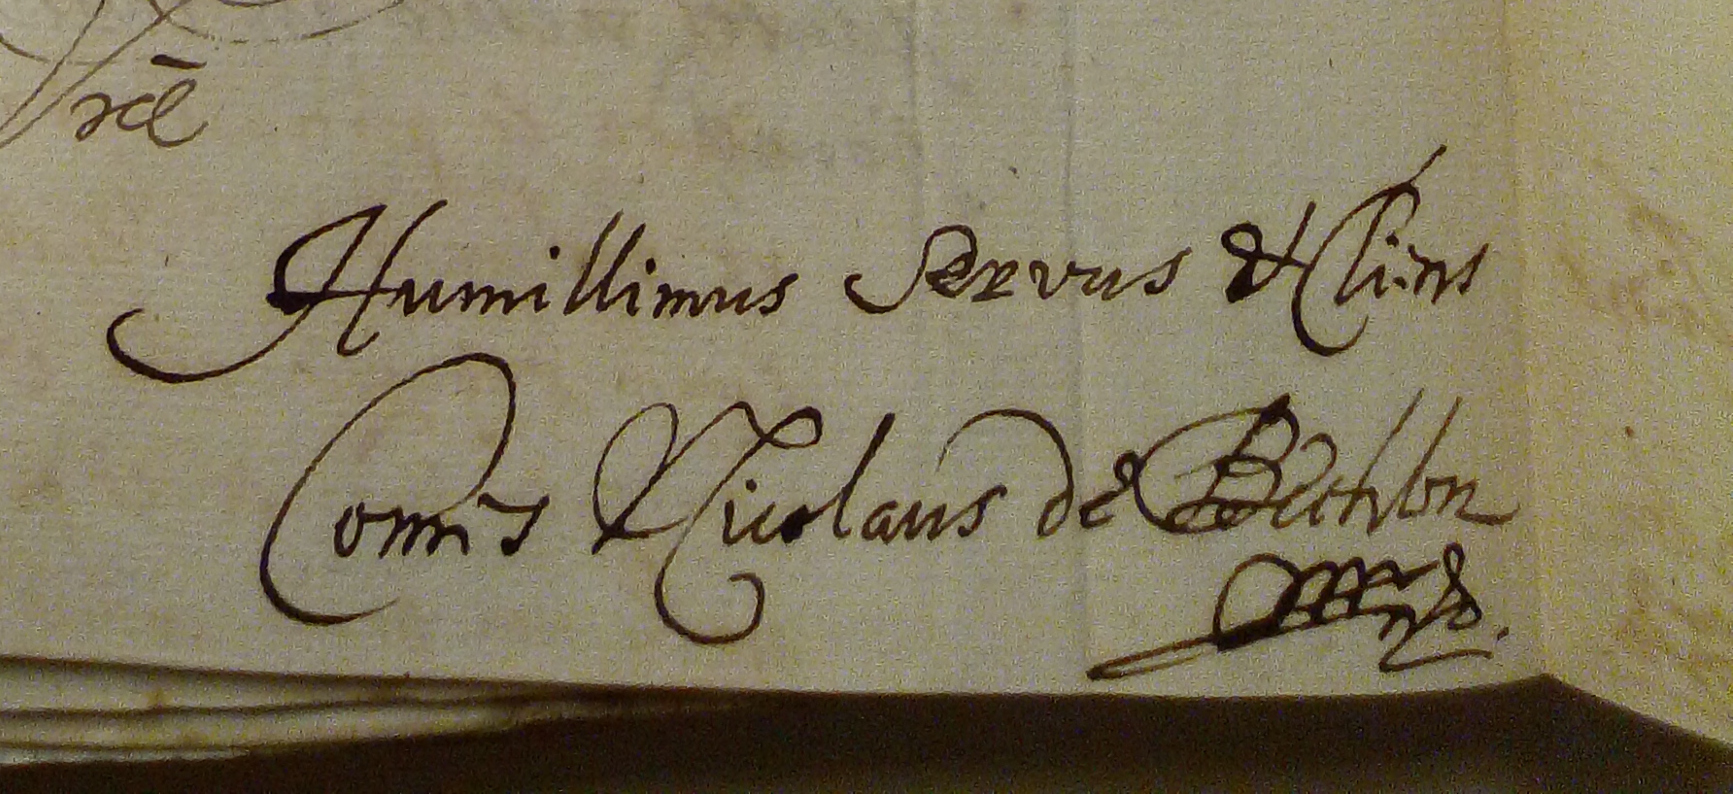 Humillimus Servus & Cliens
Comes Nicolaus de Bethlen